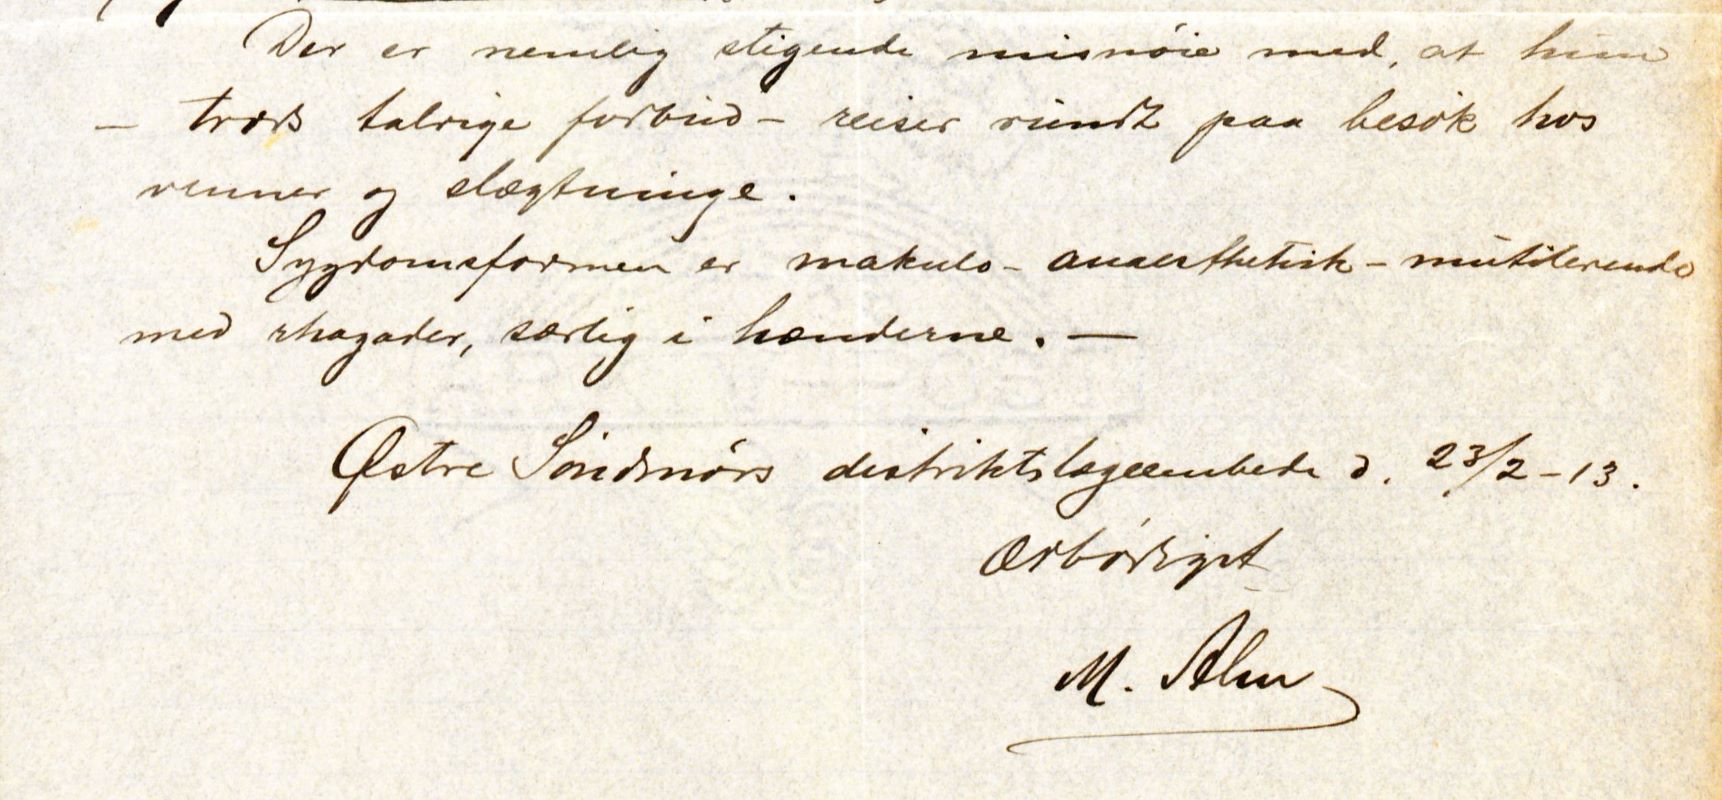 Der er nemlig stigende misnöie med, at hun
— trods talrige forbud — reiser rundt paa besök hos
venner og slægtninge.
Sygdomsformen er makulo-anaesthetisk-mutilerende
med rhagader, særlig i hænderne. —
Østre Söndmörs distriktslægeembede d. 23/2-13.
Ærbödigst
M. Alm